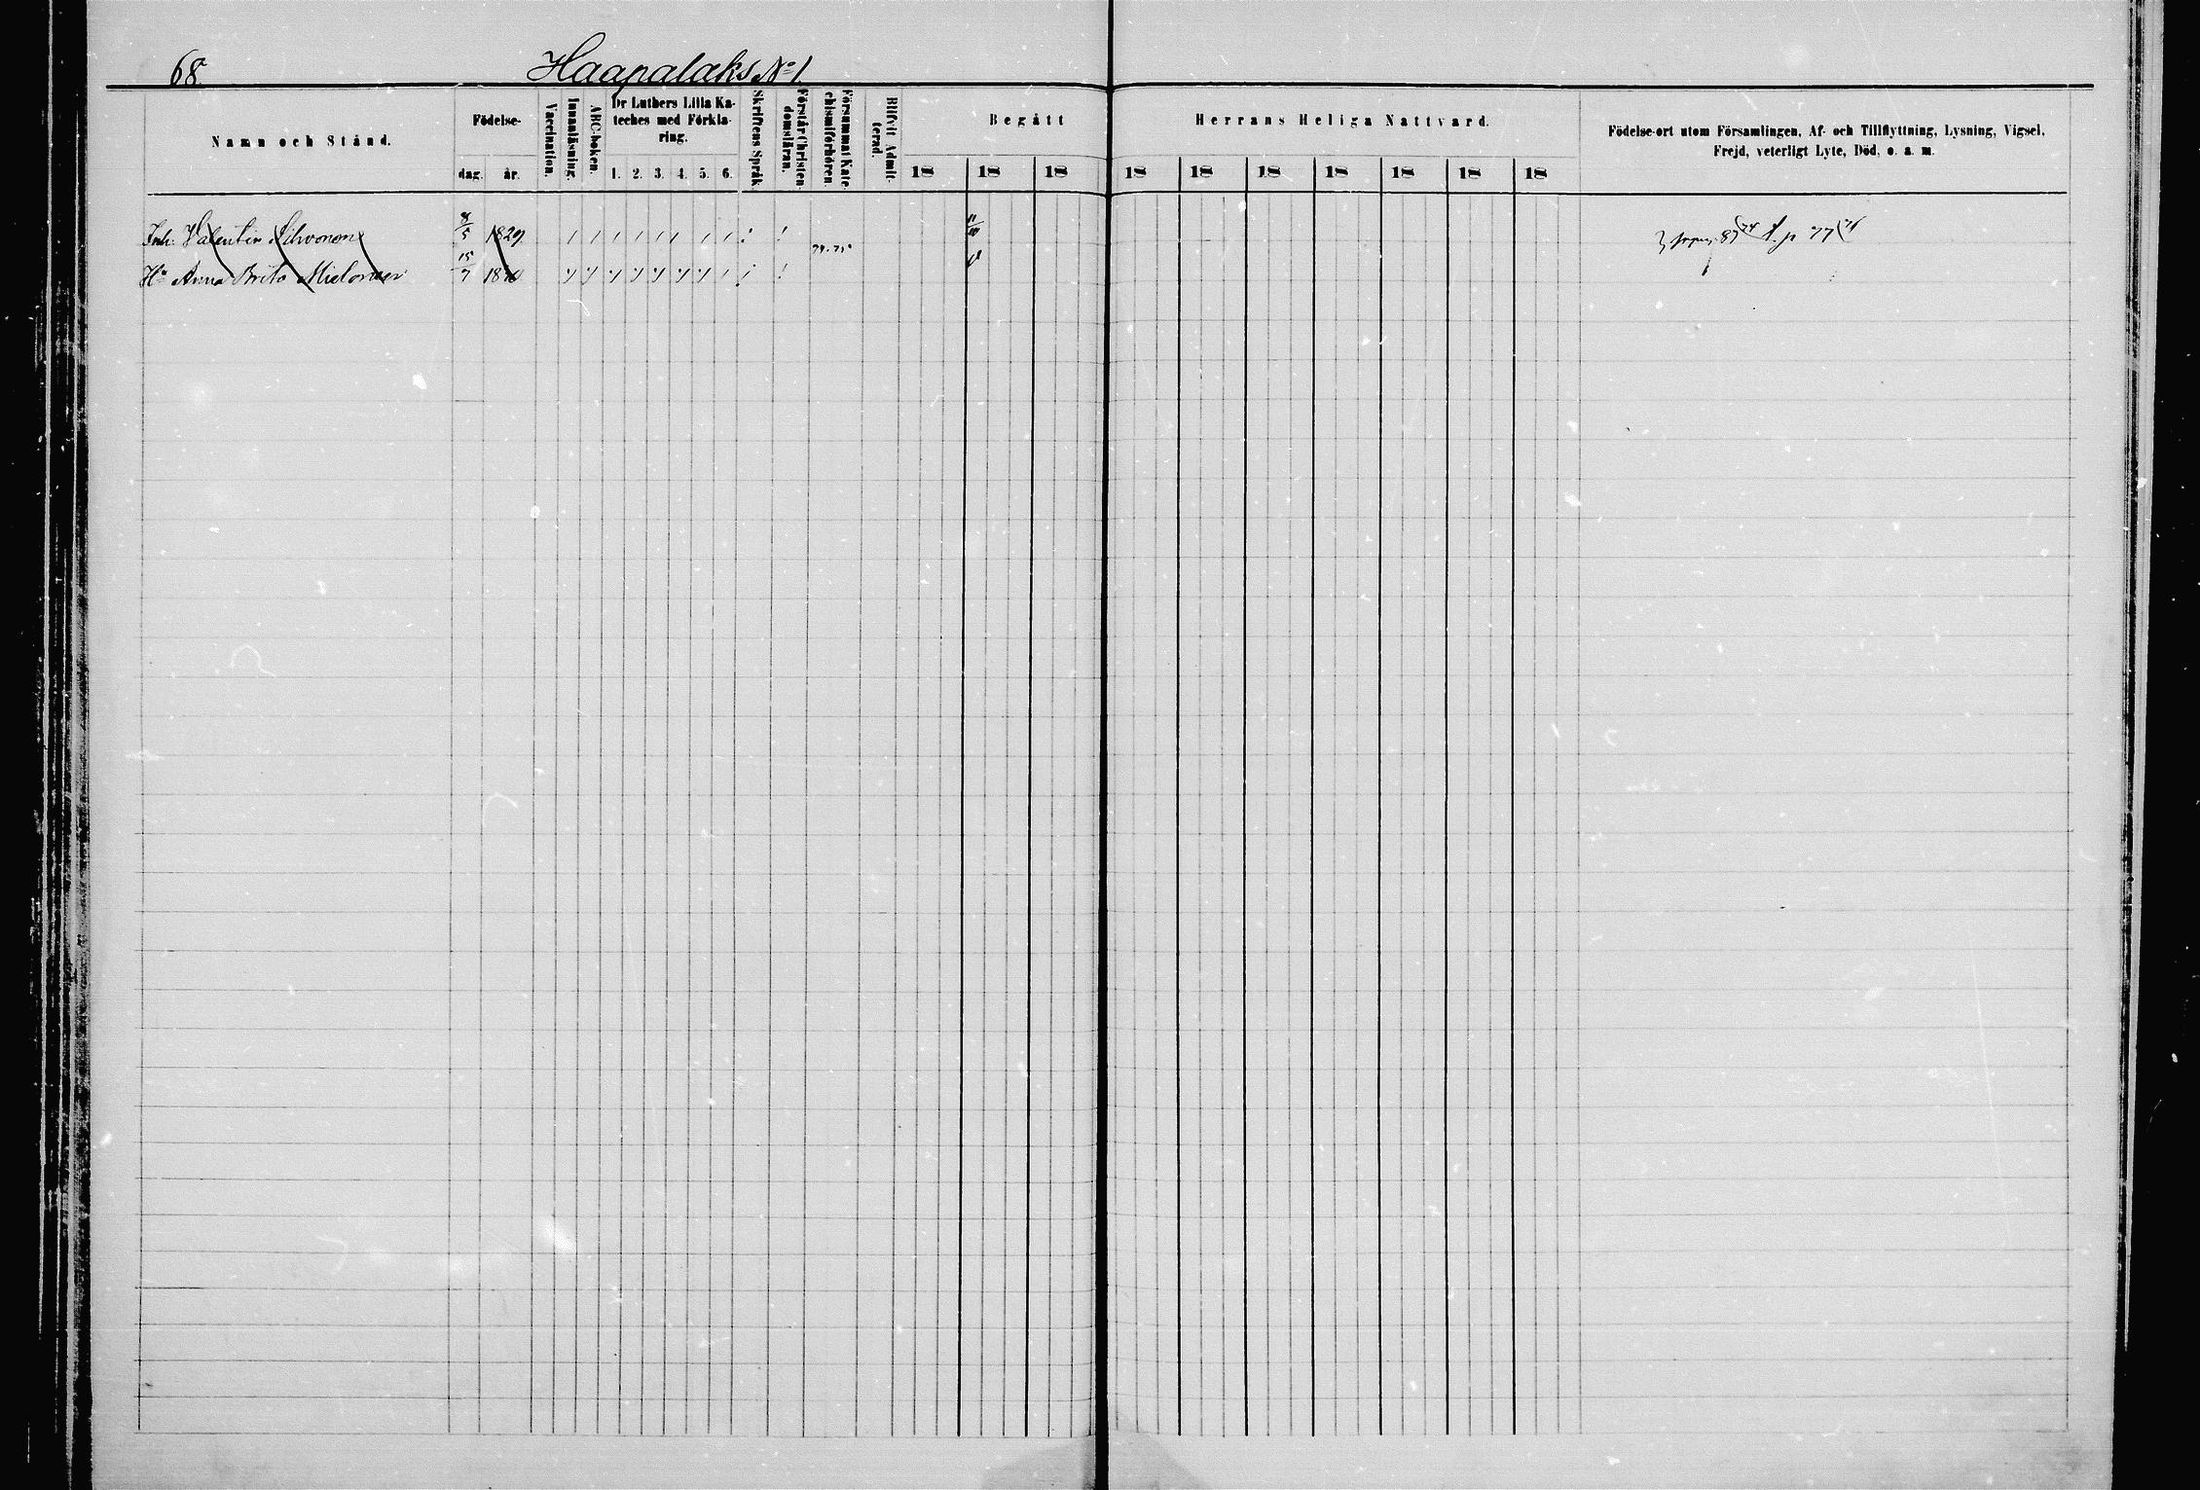 68.
Haapalaks № 1.
Namn och Stånd.
Födelse-
dag. år.
Vaccination.
Innanläsning.
ABC-boken.
Dr Luthers Lilla Ka-
teches med Förkla-
ring.
1. 2. 3. 4. 5. 6.
Skriftens Språk.
Förstår Christen-
domsläran.
Försummat Kate-
chismiförhören.
Blifvit Admit-
terad.
Begått
Herrans Heliga Nattvard.
18 18 18 18 18 18 18 18 18 18
Födelse-ort utom Församlingen, Af- och Tillflyttning, Lysning, Vigsel,
Frejd, veterligt Lyte, Död, o. a. m.
Inh. Valentin Silvonen 8/5 1829
74-75
Hu Anna Brita Mielonen 15/7